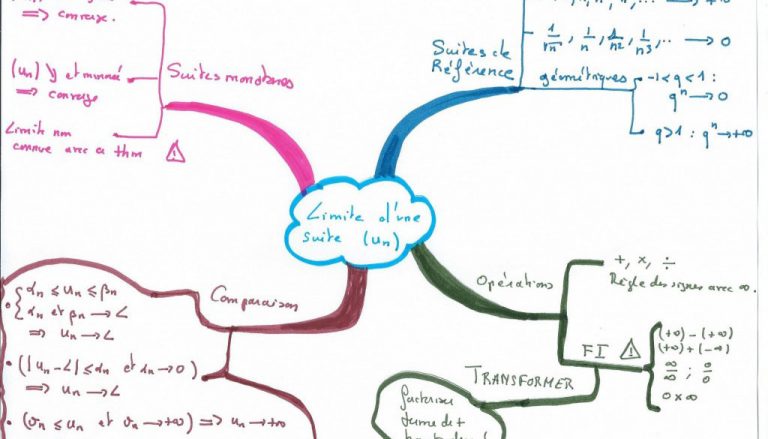 => converge.
(un) ↘ et minorée
=> converge
Limite non
connue avec ce thm
Suites monotones
Suites de
Référence
1/√n , 1/n , 1/n² , 1/n³ , .. → 0
géométriques
-1<q<1 :
qⁿ → 0
q>1 : qⁿ → +∞
Limite d'une
suite (un)
Comparaison
αn ≤ un ≤ βn
αn et βn → L
=> un → L
• (|un-L| ≤ αn et αn → 0)
=> un → L
• (vn ≤ un et vn → +∞) => un → +∞
Opérations
+, ×, ÷
Règle des signes avec ∞.
FI
(+∞) - (+∞)
(+∞) + (-∞)
∞/∞ ; 0/0
0 × ∞
TRANSFORMER
factoriser
terme de +